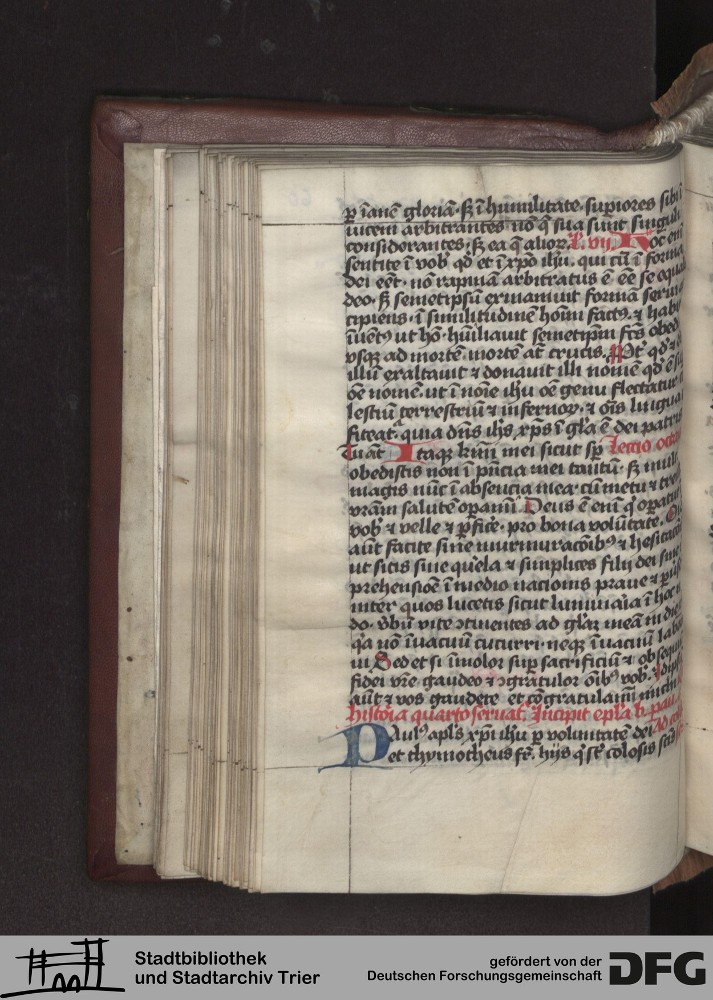 p̱ īanē gloriā· sꝫ ī humilitate· sup̱iores sibi
uicem arbitrantes nō q̄ sua sunt singuli
considerantes· sꝫ ea q̄ alioꝝ. l. vij. Hoc enī
sentite ī vob̄ qd̄ et ī xp̄o ih̄u. qui cū ī forma
dei eēt· nō rapinā arbitratus ē eē se equa
deo· sꝫ semetipsū exinaniuit formā serui
cipiens· ī similitudinē hoīm fact⁹· ⁊ habi
īuēt⁹ ut hō· hūiliauit semetip̄m fc̄s obed
vsqꝫ ad mortē· morte at̄ crucis. Pt̄ qd̄ ⁊ d
illū exaltauit ⁊ donauit illi nomē qd̄ ē su
oē nomē· ut ī noīe ih̄u oē genu flectatur
lestiū terrestriū ⁊ infernoꝝ· ⁊ oīs lingua
fiteat̄· quia dn̄s ih̄s xp̄s ī gl̄a ē dei patris
Itaqꝫ km̄i mei sicut sp̱ lectio octaua
obedistis non ī p̄ncia mei tantū· sꝫ mul
magis nūc ī absencia mea· cū metu ⁊ tre
vrām salutē opamī. Deus ē eni q̄ opatur
vob̄ ⁊ velle ⁊ p̱fice· pro bona volūtate. Oīa
aūt facite sine murmuracōib⁹ ⁊ hesitacōib
ut sitis sine q̄rela ⁊ simplices filij dei sine
prehensioē ī medio nacionis praue ⁊ p̱uers
inter quos lucetis sicut luminaīa ī hoc m
do· v̄bū vite ↄtinentes ad gl̄aꝫ meā in die
q̄a nō īuacuū cucurri· neqꝫ īuacuū labora
ui Sed et si īmolor sup̱ sacrificiū ⁊ obsequiū
fidei vr̄e gaudeo ⁊ ↄgratulor oīb⁹ vob̄. Idip̄m
aūt ⁊ vos gaudete et cōgratulamī michi
historia quarto seruat̄. Incipit ep̄la b. pau
Paul⁹ apl̄s xp̄i ih̄u p̱ voluntatē dei ad col
et thymotheus fr̄. hijs q̄ st̄ colosis
Stadtbibliothek
und Stadtarchiv Trier
gefördert von der
Deutschen Forschungsgemeinschaft
DFG